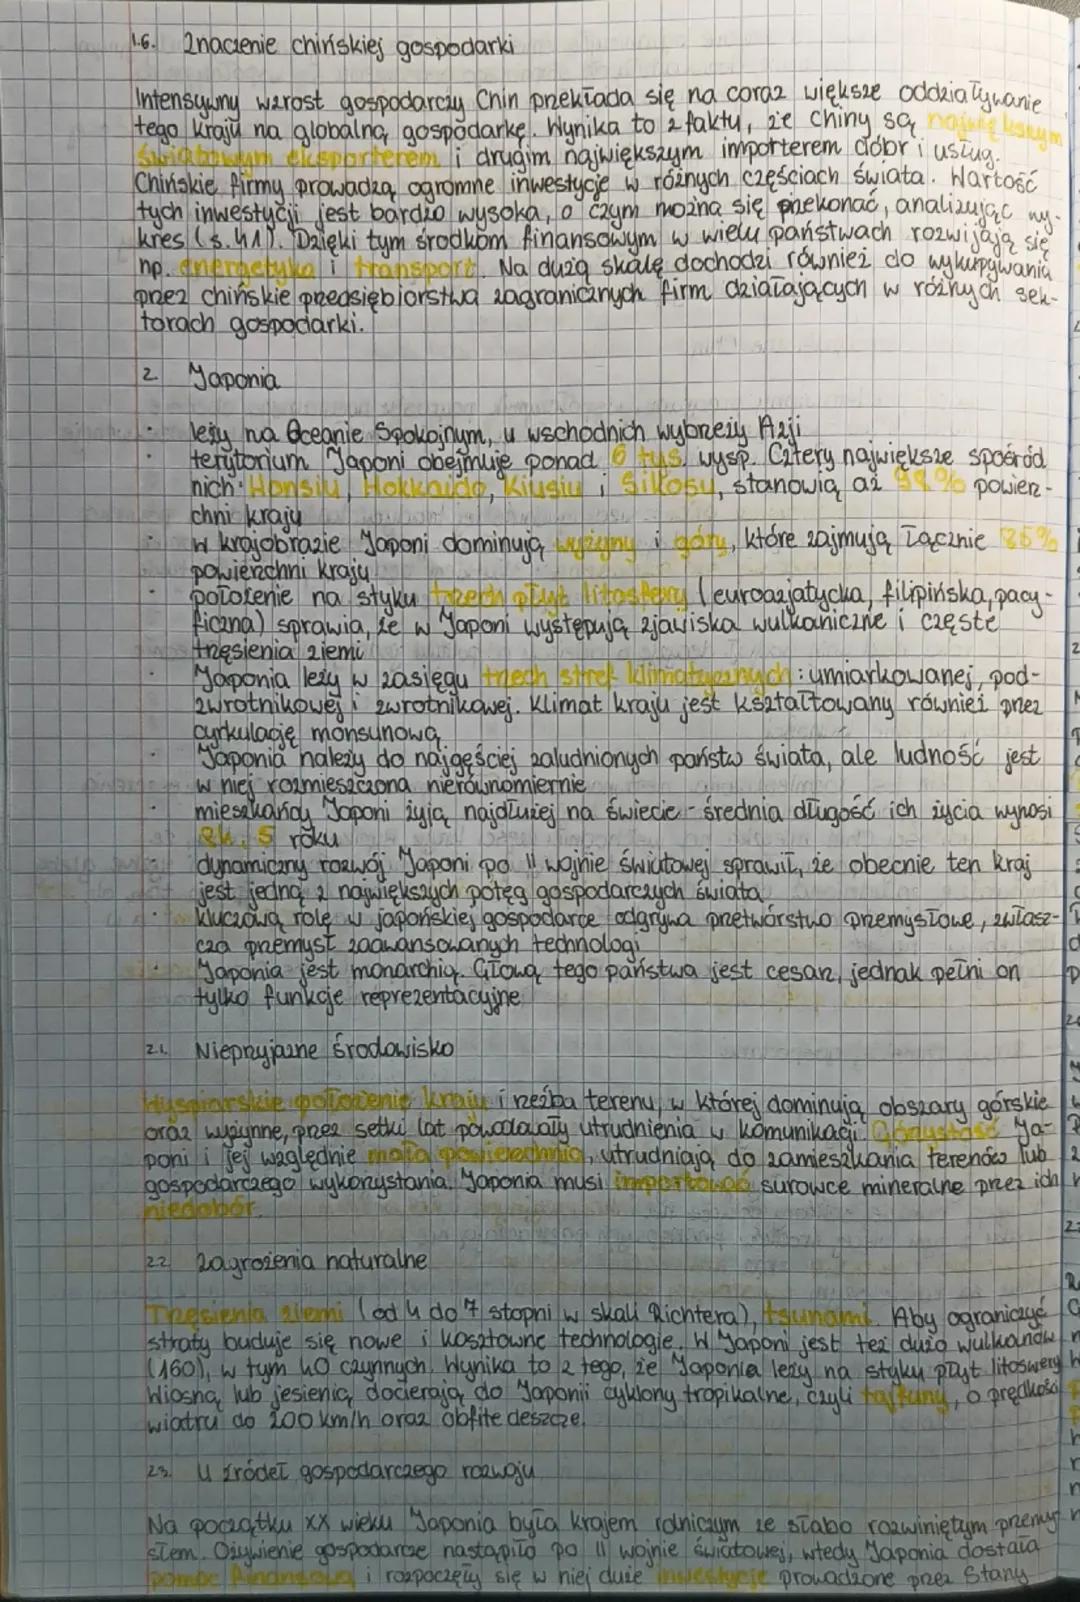 1.6. Znaczenie chińskiej gospodarki
Intensywny wzrost gospodarczy Chin przekłada się na coraz większe oddziaływanie
tego kraju na globalną gospodarkę. Wynika to z faktu, że chiny są największym
światowym eksporterem i drugim największym importerem dóbr i usług.
Chińskie firmy prowadzą ogromne inwestycje w różnych częściach świata. Wartość
tych inwestycji jest bardzo wysoka, o czym można się przekonać, analizując wy-
kres (s.41). Dzięki tym środkom finansowym w wielu państwach rozwijają się
np. energetyka i transport. Na dużą skalę dochodzi również do wykupywania
przez chińskie przedsiębiorstwa zagranicznych firm działających w różnych sek-
torach gospodarki.
2. Japonia
• leży na Oceanie Spokojnym, u wschodnich wybrzeży Azji
• terytorium Japoni obejmuje ponad 6 tys. wysp. Cztery największe spośród
nich: Honsiu, Hokkaido, Kiusiu i Sikosu, stanowią aż 98% powierz-
chni kraju
• w krajobrazie Japoni dominują wyżyny i góry, które zajmują łącznie 85%
powierzchni kraju
• położenie na styku trzech płyt litosfery (euroazjatycka, filipińska, pacy-
ficzna) sprawia, że w Japoni występują zjawiska wulkaniczne i częste
trzęsienia ziemi
• Japonia leży w zasięgu trzech stref klimatycznych: umiarkowanej, pod-
zwrotnikowej i zwrotnikowej. Klimat kraju jest kształtowany również przez
cyrkulację monsunową
• Japonia należy do najgęściej zaludnionych państw świata, ale ludność jest
w niej rozmieszczona nierównomiernie
• mieszkańcy Japoni żyją najdłużej na świecie - średnia długość ich życia wynosi
84,5 roku
• dynamiczny rozwój Japoni po II wojnie światowej sprawił, że obecnie ten kraj
jest jedną z największych potęg gospodarczych świata
• kluczową rolę w japońskiej gospodarce odgrywa przetwórstwo przemysłowe, zwłasz-
cza przemysł zaawansowanych technologi
• Japonia jest monarchią. Głową tego państwa jest cesarz, jednak pełni on
tylko funkcje reprezentacyjne
2.1. Nieprzyjazne środowisko
Wyspiarskie położenie kraju i rzeźba terenu, w której dominują obszary górskie
oraz wyżynne, przez setki lat powodowały utrudnienia w komunikacji. Górzystość Ja-
poni i jej względnie mała powierzchnia, utrudniają do zamieszkania terenów lub
gospodarczego wykorzystania. Japonia musi importować surowce mineralne przez ich
niedobór.
2.2. Zagrożenia naturalne
Trzęsienia ziemi (od 4 do 7 stopni w skali Richtera), tsunami. Aby ograniczyć
straty buduje się nowe i kosztowne technologie. W Japoni jest też dużo wulkanów
(160), w tym 40 czynnych. Wynika to z tego, że Japonia leży na styku płyt litoswery
Wiosną lub jesienią docierają do Japonii cyklony tropikalne, czyli tajfuny, o prędkości
wiatru do 200 km/h oraz obfite deszcze.
2.3. U źródeł gospodarczego rozwoju
Na początku XX wieku Japonia była krajem rolniczym ze słabo rozwiniętym przemy-
słem. Ożywienie gospodarcze nastąpiło po II wojnie światowej, wtedy Japonia dostała
pomoc finansową i rozpoczęły się w niej duże inwestycje prowadzone przez Stany